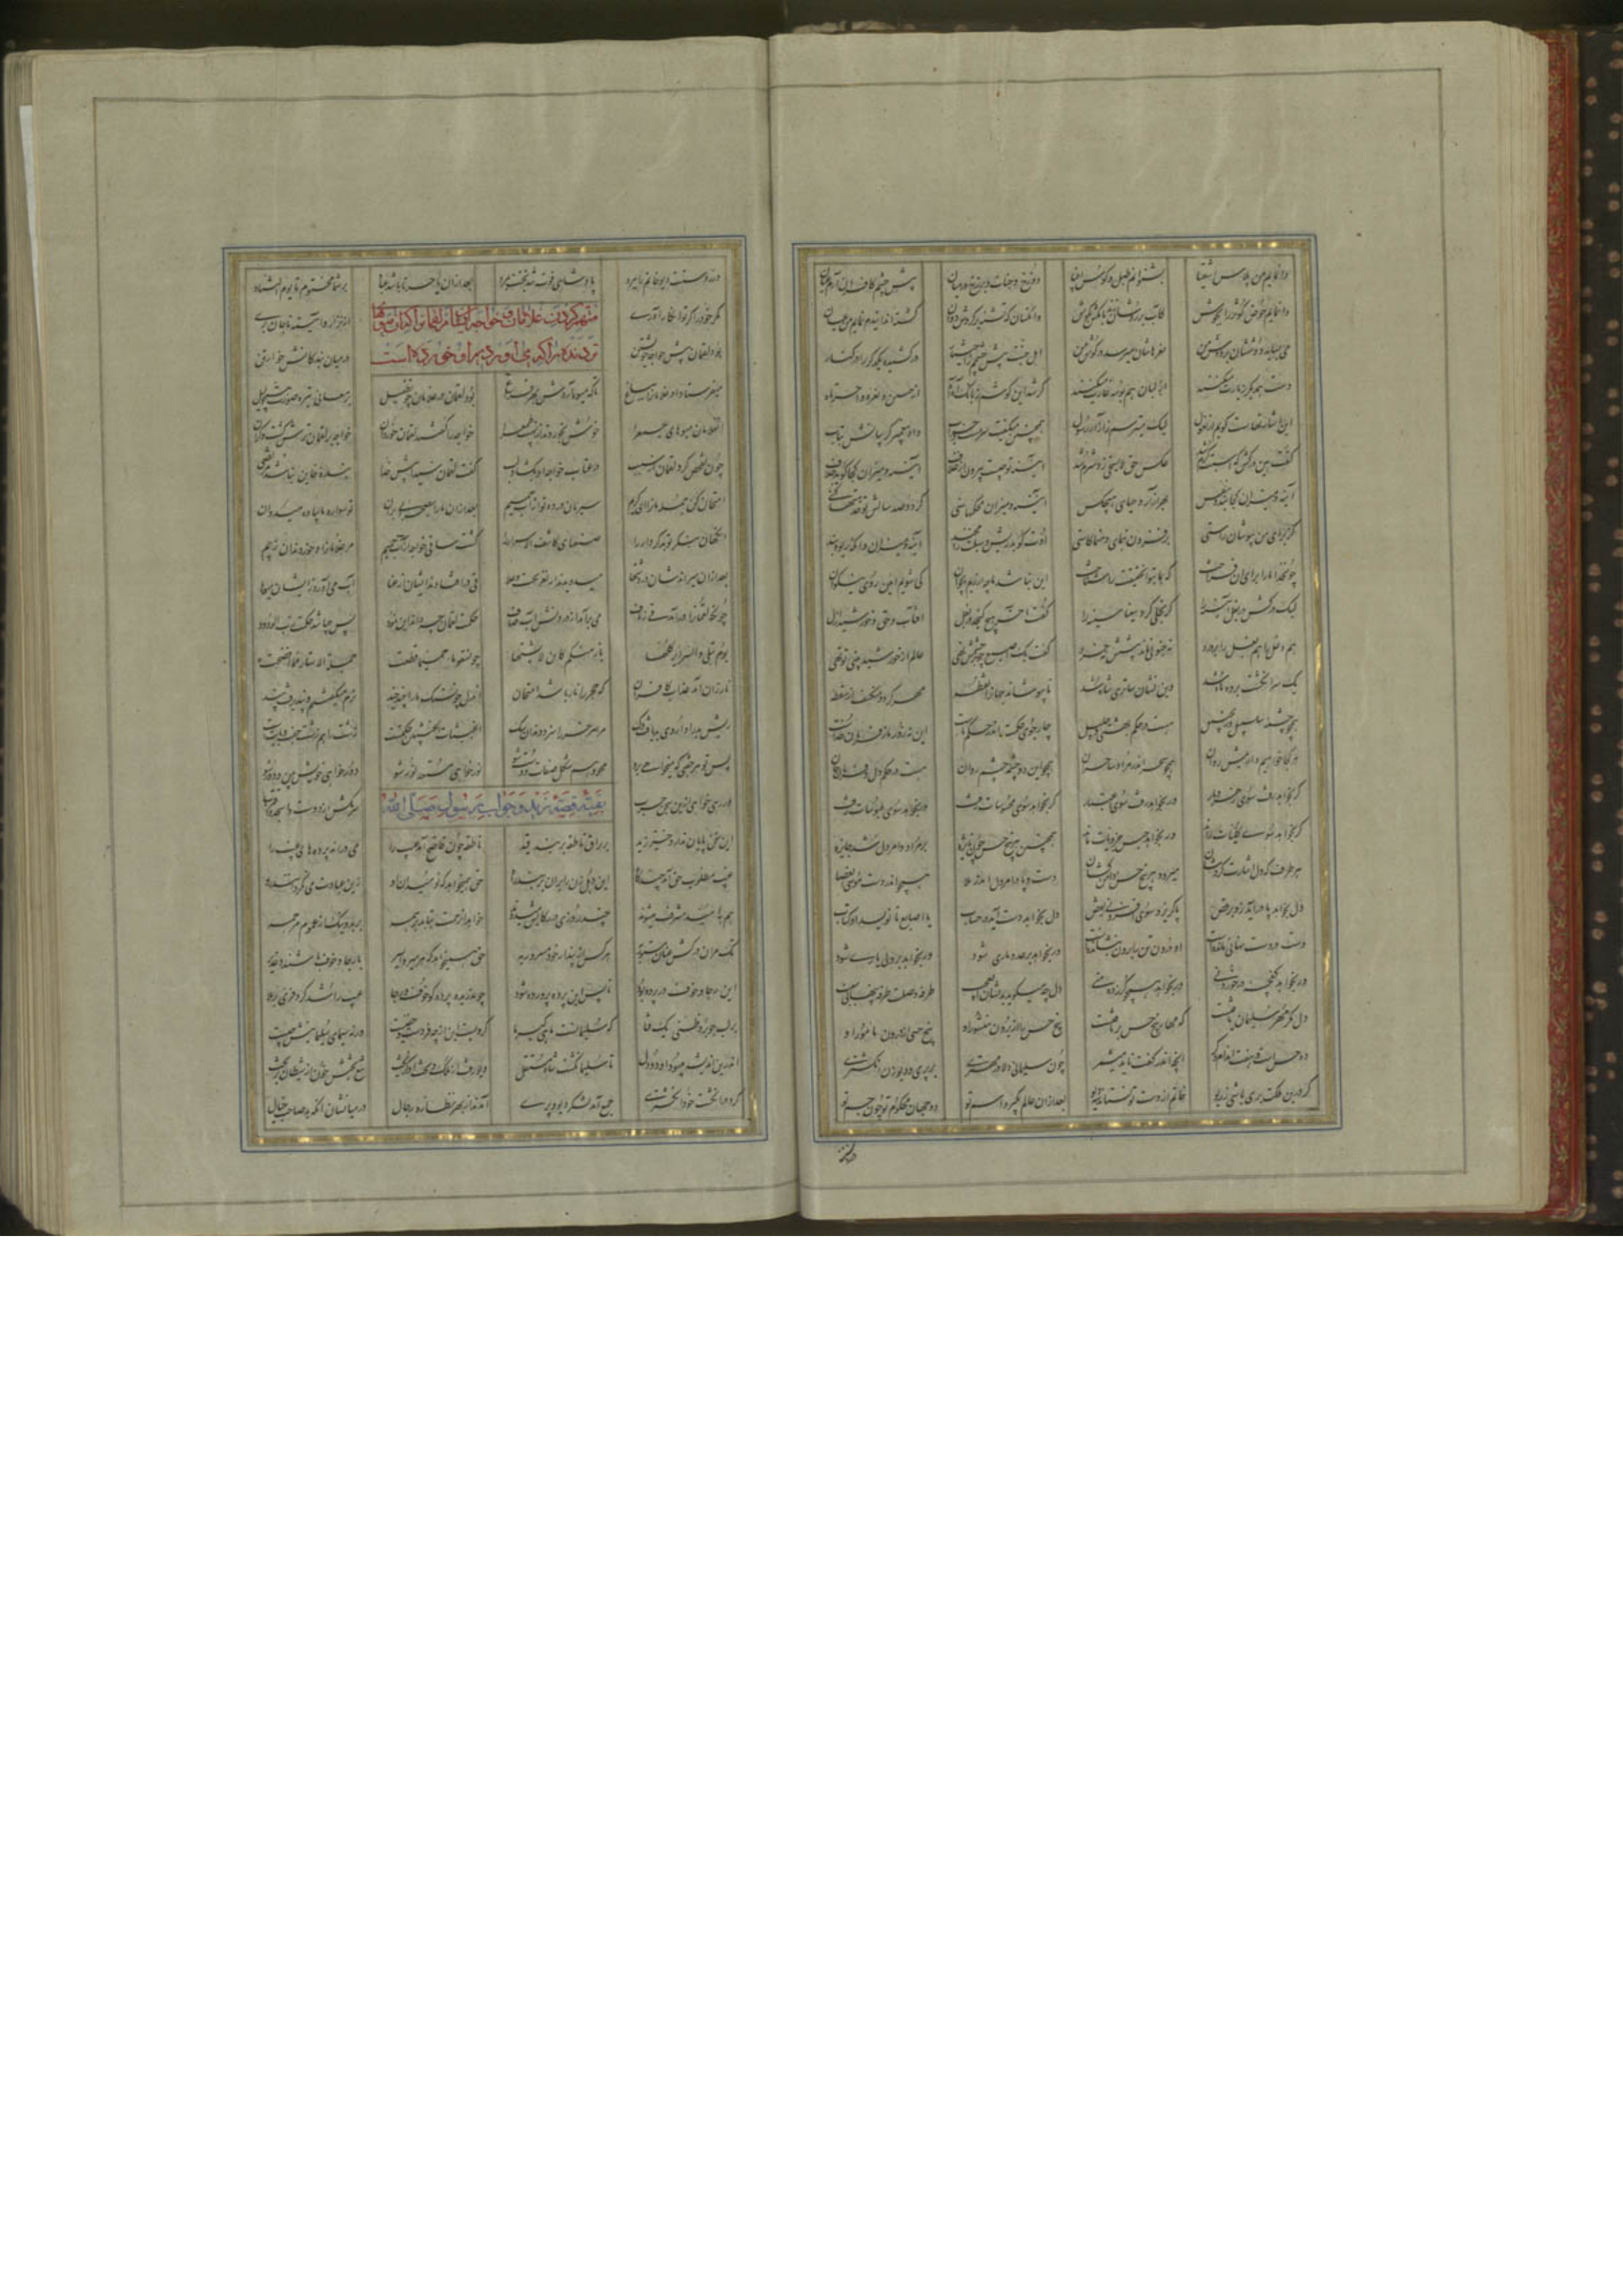 وانمایم من پلاس اشقیا بشنوانم طبل و کوس انبیا دوزخ و جنات و برزخ در میان پیش چشم کافران آرم عیان
وانمایم حوض کوثر را بجوش کآب بر روشان زند بانگش بگوش وانکسان که تشنه بر گردش دوان گشته اند ایندم نمایم من عیان
می بساید دوششان بر دوش من نعرهاشان میرسد در گوش من اهل جنت پیش چشمم در کشیده یکدگر را در کنار
دست همدیگر زیارت میکنند از لبان هم بوسه غارت میکنند کر شد این گوشم ز بانگ آه آه از حنین و نعره واحسرتاه
این اشارتهاست گویم از نغول لیک میترسم ز آزار رسول همچنین میگفت سرمست و خراب داد پیغمبر گریبانش بتاب
گفت هین درکش که اسبت گرم شد عکس حق لایستحی زد شرم شد آینه تو جست بیرون از غلاف آینه و میزان کجا گوید خلاف
آینه و میزان کجا بندد نفس بهر آزار و حیای هیچکس آینه و میزان محکهای سنی گر دو صد سالش تو خدمتها کنی
کز برای من بپوشان راستی بر فزون بنمای و منما کاستی اوت گوید ریش و سبلت بر مخند آینه و میزان
چون خدا ما را برای آن فراخت که بما بتوان حقیقت را شناخت این نباشد ما چه ارزیم ای جوان کی شویم آیین روی نیکوان
لیک درکش در بغل آیینه را گر تجلی کرد سینا سینه را گفت آخر هیچ گنجد در بغل آفتاب حق و خورشید ازل
هم دغل را هم بغل را بر درد نه جنون ماند به پیشش نه خرد گفت یک اصبع چو بر چشمی نهی عالم از خورشید بینی تو تهی
یک سر انگشت پرده ماه شد وین نشان ساتری شاه شد تا بپوشاند جهان را نقطه مهر گردد منکسف از سقطه
همچو چشمه سلسبیل و زنجبیل هست در حکم بهشتی جلیل چار جوی جنت اندر حکم ماست این نه زور ما ز فرمان خداست
هر کجا خواهیم داریمش روان همچو سحر اندر مراد ساحران همچو این دو چشمه چشم روان هست در حکم دل و فرمان جان
گر بخواهد رفت سوی زهر و مار ور بخواهد رفت سوی اعتبار گر بخواهد سوی محسوسات رفت ور بخواهد سوی ملبوسات رفت
گر بخواهد سوی کلیات راند ور بخواهد حبس جزویات ماند همچنین هر پنج حس چون نایزه بر مراد و امر دل شد جایزه
هر طرف که دل اشارت کردشان میرود هر پنج حس دامن کشان دست و پا در امر دل اندر ملا همچو اندر دست موسی آن عصا
دل بخواهد پا درآید زو برقص یا گریزد سوی افزونی ز نقص دل بخواهد دست آید در حساب با اصابع تا نویسد او کتاب
دست در دست نهانی مانده است او درون تن برون بنشانده است گر بخواهد بر عدو ماری شود ور بخواهد بر ولی یاری شود
ور بخواهد کفچه در خوردنی ور بخواهد همچو گرز ده منی دل چه میگوید بدیشان ای عجب طرفه وصلت طرفه پنهانی سبب
دل مگر مهر سلیمان یافتست که مهار پنج حس برتافتست پنج حس از برون میسور او پنج حسی از درون مامور او
ده حس است و هفت اندام و دگر آنچه اندر گفت ناید میشمر چون سلیمانی دلا در مهتری بر پری و دیو زن انگشتری
گر درین ملکت بری باشی ز ریو خاتم از دست تو نستاند سه دیو بعد ازان عالم بگیرد اسم تو دو جهان محکوم تو چون جسم تو
ور ز
ور ز دستت دیو خاتم را ببرد پادشاهی فوت شد بختت بمرد بعد ازان یا حسرتا بر شما محتوم تا یوم التناد
متهم کردن غلامان و خواجه تاشان مر لقمان را که آن میوها
تر دونده را که می آورد بر او خورده است
مکر خود را گر تو انکار آوری از ترازو و آینه کی جان بری
بود لقمان پیش خواجه خویشتن در میان بندگانش خوارتن
میفرستاد او غلامانرا بباغ تا که میوه آیدش بهر فراغ بود لقمان در غلامان چون طفیل پر معانی تیره صورت همچو لیل
آن غلامان میوهای جمع را خوش بخوردند از نهیب طمع را خواجه را گفتند لقمان خورد آن خواجه بر لقمان ترش گشت و گران
چون تفحص کرد لقمان از سبب در عتاب خواجه اش بگشاد لب گفت لقمان سیدا پیش خدا بنده خاین نباشد مرتضی
امتحان کن جمله ما را ای کریم سیرمان در ده تو از آب حمیم بعد ازان ما را بصحرایی بران تو سواره ما پیاده میدوان
آنگهان بنگر تو بدکردار را صنعهای کاشف الاسرار را گشت ساقی خواجه از آب حمیم مر غلامانرا و خوردند آن ز بیم
بعد ازان میراندشان در دشتها میدویدند آن نفر تحت و علا قی در افتادند ایشان از عنا آب می آورد زیشان میوها
چونکه لقمان را درآمد قی ز ناف می برآمد از درونش آب صاف حکمت لقمان چو داند این نمود پس چه باشد حکمت رب الوجود
یوم تبلی والسرایر کلها بان منکم کامن لا یشتهی چون سقوا ماء حمیما قطعت جملة الاستار مما افضحت
نار زان آمد عذاب کافران که حجر را نار باشد امتحان آن دل چون سنگ ما را چند چند نرم میگفتیم و نپذیرفت پند
ریش بد را داروی بد یافت رگ مر سر خر را سزد دندان سگ الخبیثات للخبیثین حکمتست زشت را هم زشت جفت و بابتست
پس تو هر جفتی که میخواهی برو محو و هم شکل صفات دوست شو نور خواهی مستعد نور شو دور خواهی خویش بین و دور شو
ور رهی خواهی ازین سجن خرب سر مکش از دوست واسجد واقترب
بقیه قصه زید و جواب رسول صلی الله
این سخن پایان ندارد خیز زید بر براق ناطقه بربند قید ناطقه چون فاضح آمد عیب را می دراند پردهای غیب را
غیب مطلوب حق آمد چند گاه این دهل زن را بران بربند راه حق همیخواهد که نومیدان او زین عبادت
هم بامیدی مشرف میشوند چند روزی در رکابش میدوند خواهد آن رحمت بتابد بر همه بر بد و نیک از عموم مرحمه
تک مران درکش عنان مستور به هر کس از پندار خود مسرور به حق همیخواهد که هر میر و اسیر با رجا و خوف باشند و حذیر
این رجا و خوف در پرده بود تا پس این پرده پرورده شود چون دریدی پرده کو خوف و رجا غیب را شد کر و فری
بر لب جو برد ظنی یک فتا که سلیمانست ماهی گیر ما گر ویست این از چه فردست و خفیست ورنه سیمای سلیمانیش چیست
اندرین اندیشه میبود او دو دل تا سلیمان گشت شاه مستقل دیو رفت از ملک و تخت او گریخت تیغ بختش خون آن شیطان بریخت
کرد در انگشت خود انگشتری جمع آمد لشکر دیو و پری آمدند از بهر نظاره رجال در میانشان آنکه بد صاحب خیال